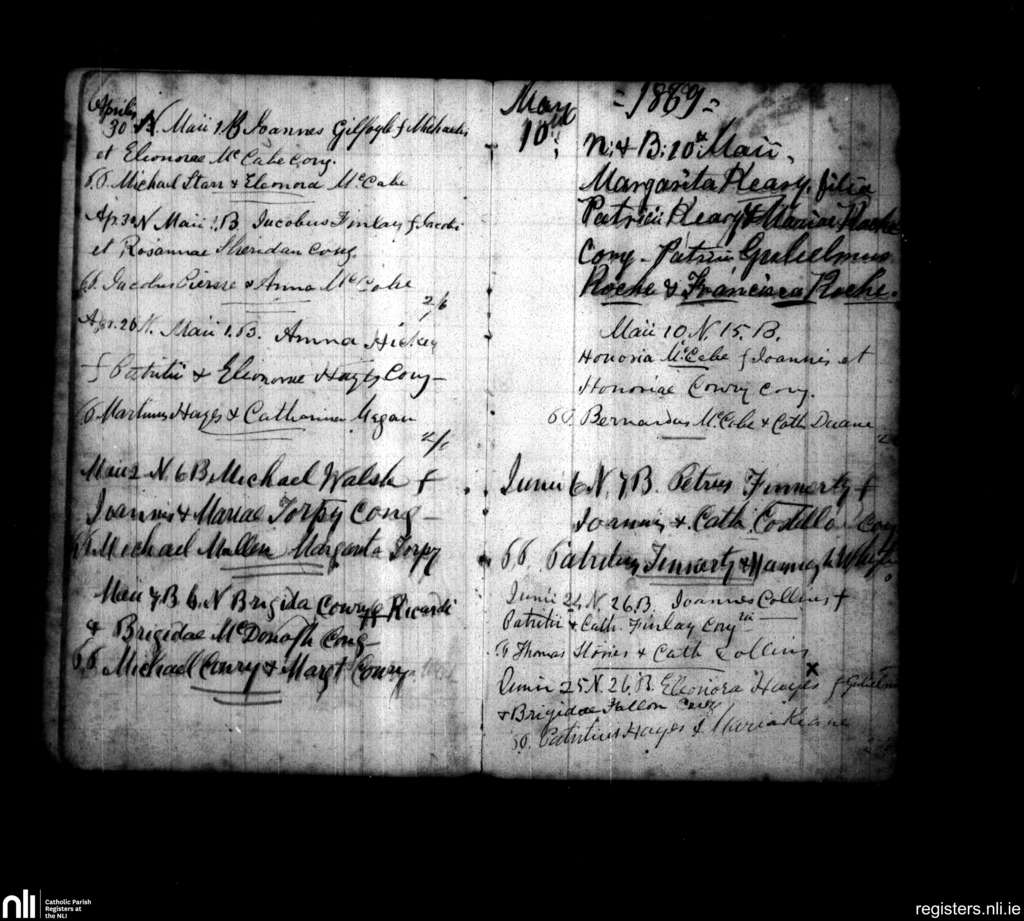 Aprilis
30 N. Maii 1 B Joannes Gilfoyle f Michaelis
et Elionorae McCabe conj.
SS. Michael Starr & Eleonora McCabe
Apr 30 N. Maii 1. B. Jacobus Finlay f Jacobi
et Rosannae Sheridan conj
SS. Jacobus Pierse & Anna McCabe
2/6
Apr. 26 N. Maii 1. B. Anna Hickey
f Patritii & Elionorae Hayes conj
SS. Martinus Hayes & Catharina Megan
2/
Maii 2 N. 6 B Michael Walsh f
Joannis & Mariae Torpy Conj
SS Michael Mullen Margarita Torpy
Maii 7 B 6. N Brigida Conry f Ricardi
& Brigidae McDonagh Conj
SS Michael Conry & Margt Conry
May = 1869 =
10th
N: & B: 10th Maii,
Margarita Kleary filia
Patricii Kleary & Mariae Roche
Conj. Patrini Gulielmus
Roche & Francisca Roche.
Maii 10. N. 15. B.
Honoria McCabe f Joannis et
Honoriae Conry conj.
SS. Bernardus McCabe & Cath Duane
Junii 6 N. 7 B. Petrus Finnerty f
Joannis & Cath Costello conj
SS. Patritius Finnerty & Hannagh
Junii 24 N. 26. B. Joannes Collins f
Patritii & Cath. Finlay Conj
SS Thomas & Cath Collins
x
Junii 25 N. 26. B. Eleonora Hayes f Gulielmi
& Brigidae Fallon Conj
SS. Patritius Hayes & Maria Keane
nli
Catholic Parish
Registers at
the NLI
registers.nli.ie